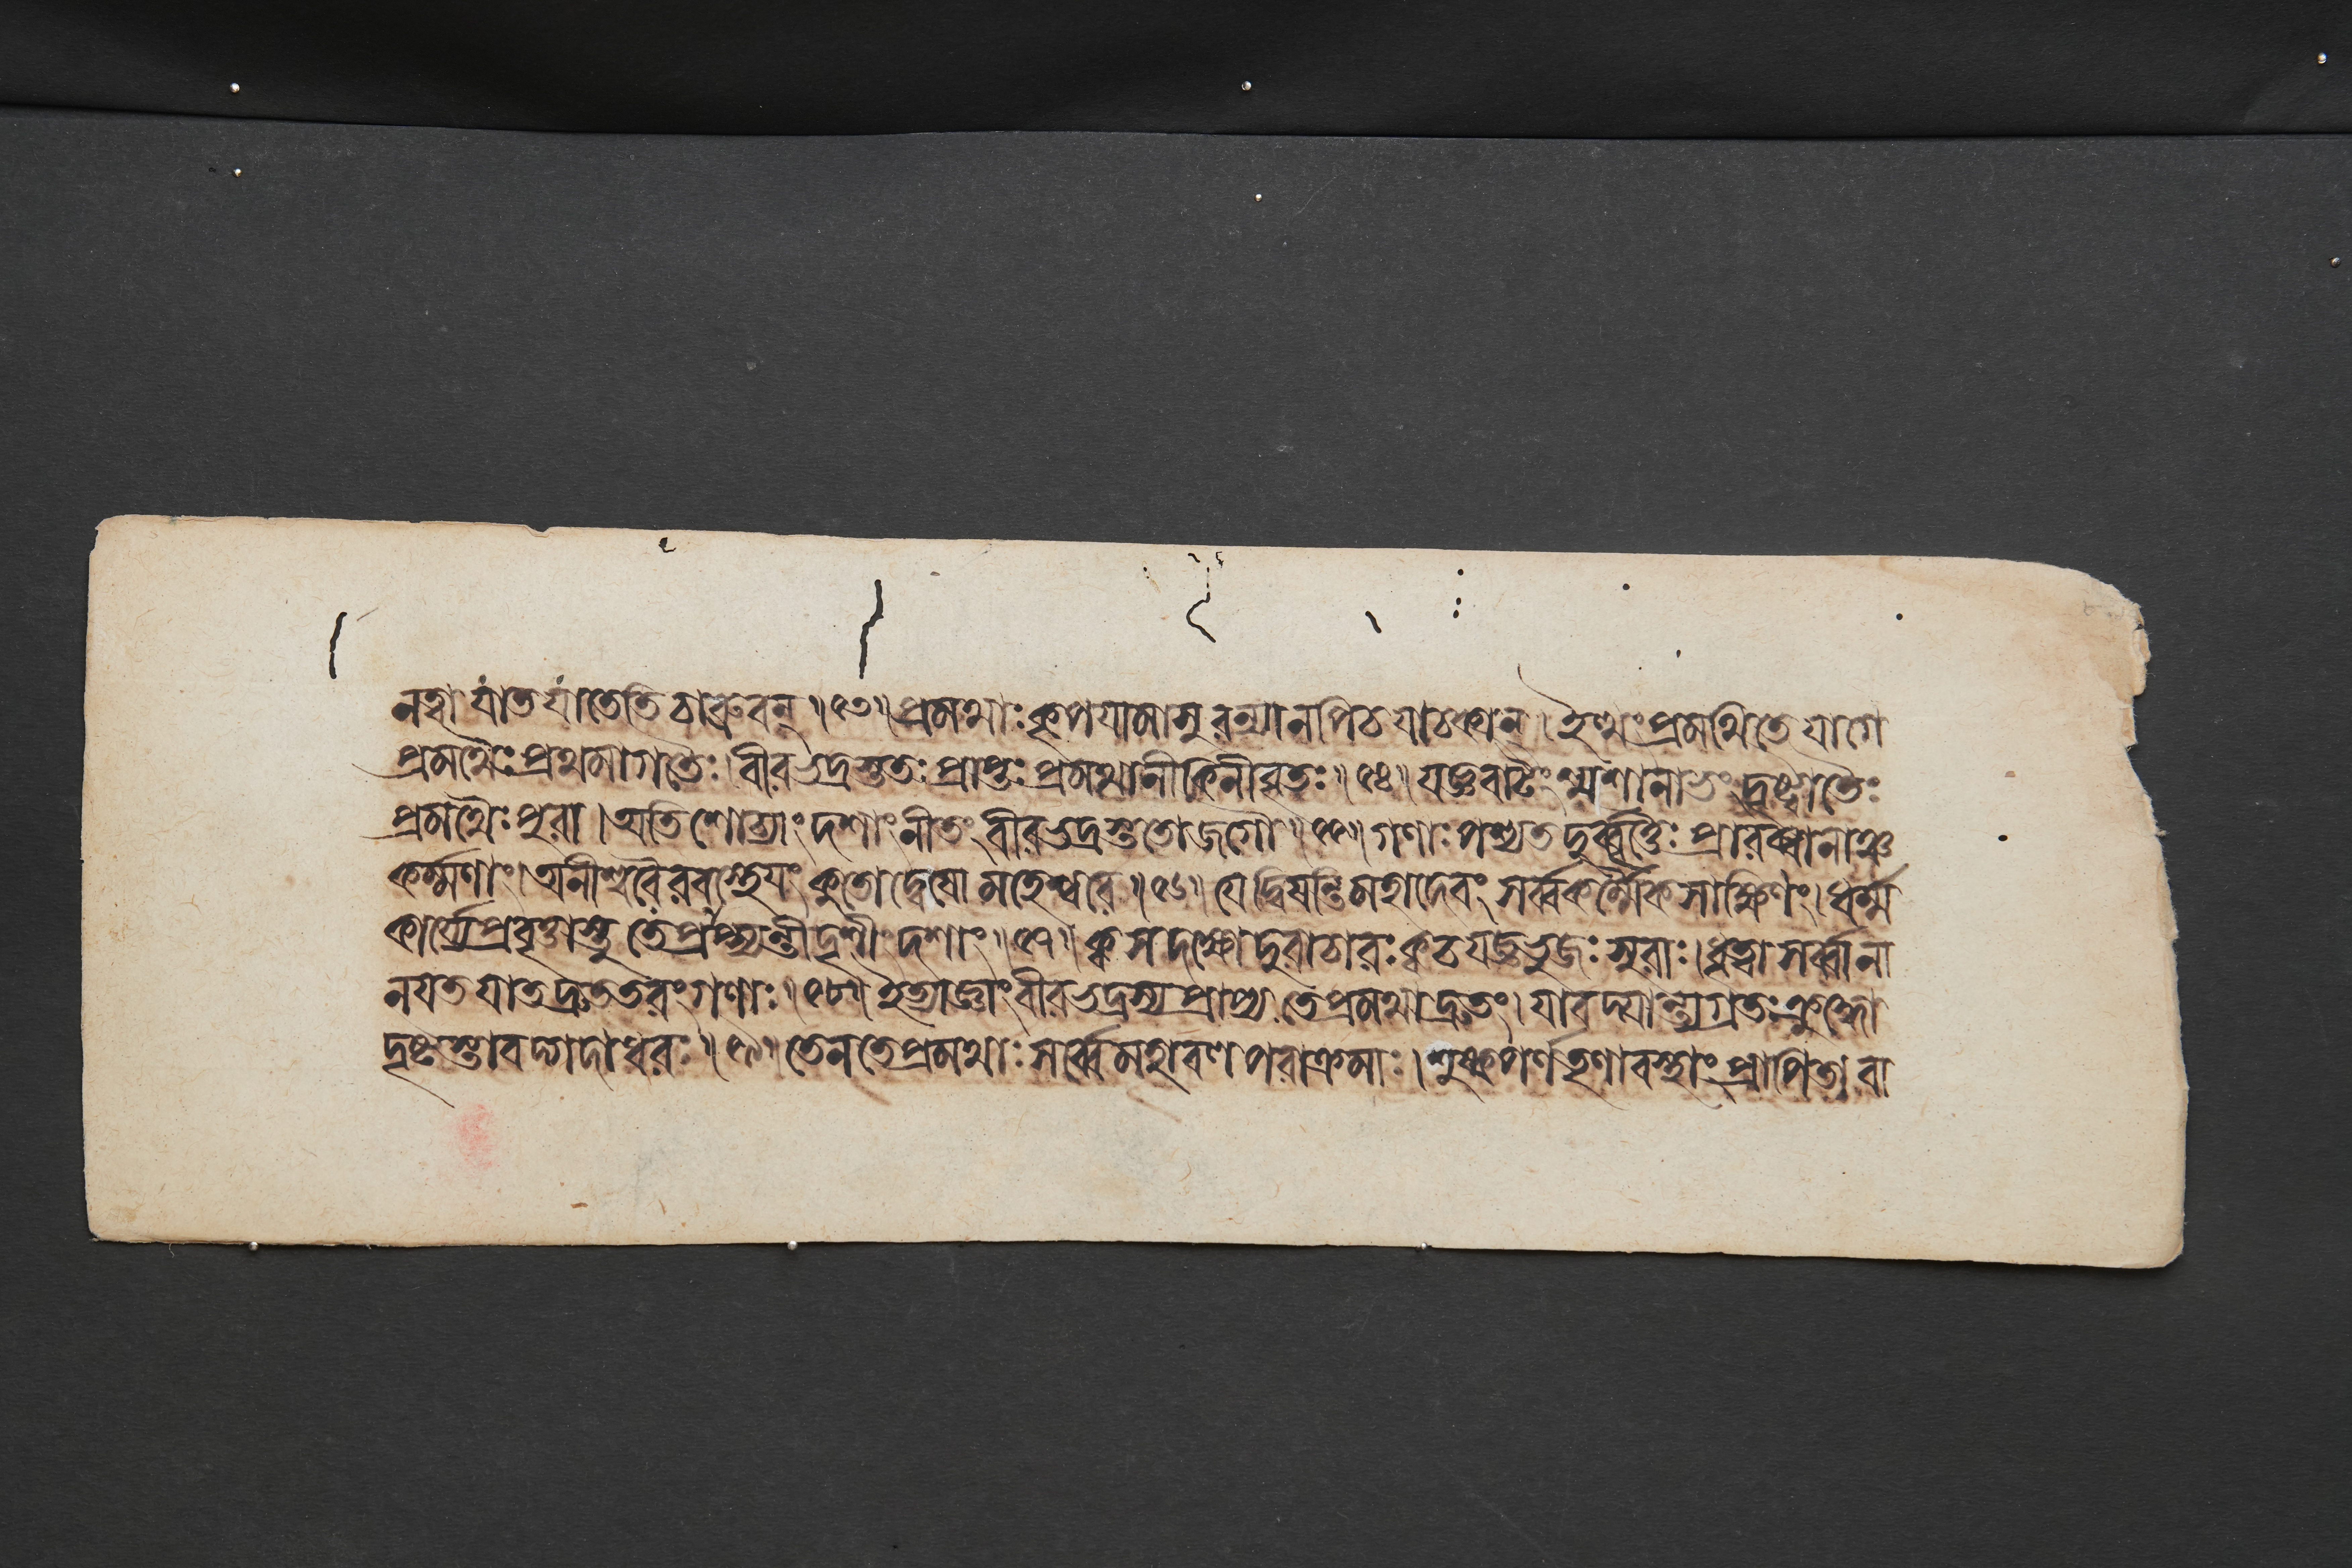 নত্বা যাত যাতেতি চাব্রুবন্ ॥৫৩॥ প্রমথাঃ ক্ষপযামাসুরন্যানপি চ যাচকান্ । ইত্থং প্রমথিতে যাগে
প্রমথৈঃ প্রথমাগতৈঃ । বীরভদ্রস্ততঃ প্রাপ্তঃ প্রমথানীকিনীবৃতঃ ॥৫৪॥ যজ্ঞবাটং শ্মশানাভং দৃষ্ট্বা তৈঃ
প্রমথৈঃ পুরা । অতিশোচ্যাং দশাং নীতং বীরভদ্রস্ততো জগৌ ॥৫৫॥ গণাঃ পশ্যত দুর্ব্বৃত্তৈঃ প্রারব্ধানাঞ্চ
কর্ম্মণাং । অনীশ্বরৈরবস্থেযং কুতো দ্বেষো মহেশ্বরে ॥৫৬॥ যে দ্বিষন্তি মহাদেবং সর্ব্বকর্ম্মৈকসাক্ষিণং । ধর্ম্ম
কার্য্যে প্রবৃত্তাস্তু তে প্রাপ্স্যন্তীদৃশীং দশাং ॥৫৭॥ ক্ব স দক্ষো দুরাচারঃ ক্ব চ যজ্ঞভুজঃ সুরাঃ । ধৃত্বা সর্ব্বানা
নযত যাত দ্রুততরং গণাঃ ॥৫৮॥ ইত্যাজ্ঞাং বীরভদ্রস্য প্রাপ্য তে প্রমথা দ্রুতং । যাবদ্যান্ত্যগ্রতঃ ক্রুদ্ধো
দৃষ্টস্তাবদ্গদাধরঃ ॥৫৯॥ তেন তে প্রমথাঃ সর্ব্বে মহাবলপরাক্রমাঃ । শুষ্কপর্ণতৃণাবস্থাং প্রাপিতা বা